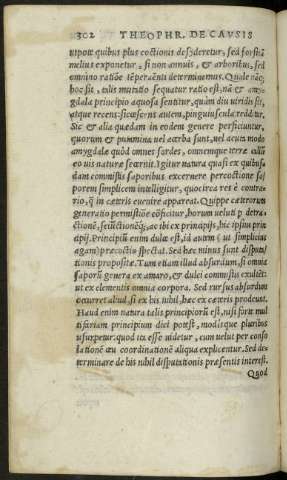 302 THEOPHR. DE CAVSIS
utpote quibus plus coctionis desyderetur, sed forsitã
melius exponetur, si non annuis, & arboribus, sed
omnino ratiõe tẽperãenti determinemus. Quale nãq;
hoc sit, talis mutatio sequatur ratio est, nã & amy
gdala principio aquosa sentitur, quàm diu viridis sit,
atque recens: siccescens autem, pinguiscula redditur.
Sic & alia quædam in eodem genere perficiuntur,
quorum & gummina uel acerba sunt, uel acuta modo
amygdalæ quòd omnes sardes, omnemque terræ calli
eo uis naturæ secernit. Igitur natura quasi ex quibus
dam commistis saporibus excernere percoctione sa
porem simplicem intelligitur, quocirca res è contra
rio, q̃ in cæteris euenire appareat. Quippe cæterorum
generatio permistiõe efficitur, horum ueluti p detra
ctionẽ, seiũctionẽq;, ac ibi ex principijs, hic ipsius prin
cipij. Principiũ enim dulce est, id autem (ut simplicius
agam) præcoctio spectat. Sed hæc minus sunt disputa
tionis propositæ. Tum etiam illud absurdum, si omnia
saporũ genera ex amaro, & dulci commistis exultẽt:
ut ex elementis omnia corpora. Sed rursus absurdum
occurret aliud, si ex his nihil, hæc ex cæteris prodeunt.
Haud enim natura talis principiorũ est, nisi forte mul
tifariam principium dici potest, modisque pluribus
usurpetur. quod ita esse uidetur, cum uelut per conso
lationẽ aũ coordinationẽ aliqua explicentur. Sed de
terminare de his nihil disputationis præsentis interest.
Quod